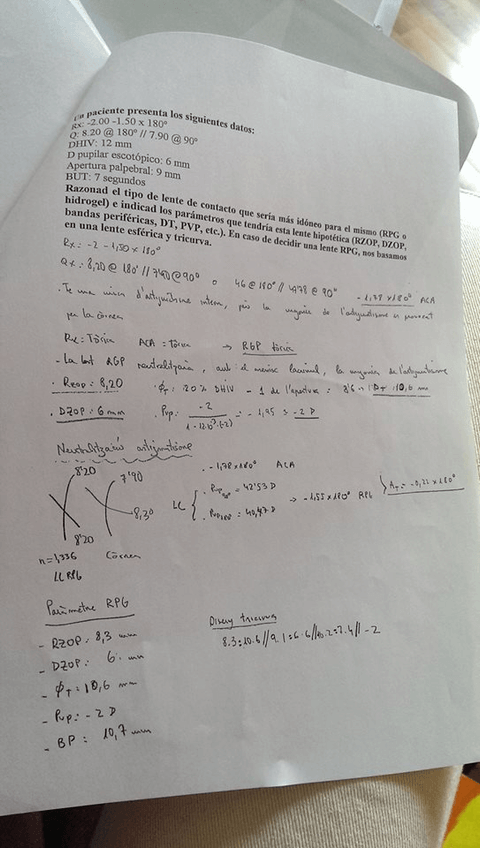 Un paciente presenta los siguientes datos:
Rx: -2.00 -1.50 x 180º
Q: 8.20 @ 180º // 7.90 @ 90º
DHIV: 12 mm
D pupilar escotópico: 6 mm
Apertura palpebral: 9 mm
BUT: 7 segundos
Razonad el tipo de lente de contacto que sería más idóneo para el mismo (RPG o
hidrogel) e indicad los parámetros que tendría esta lente hipotética (RZOP, DZOP,
bandas periféricas, DT, PVP, etc.). En caso de decidir una lente RPG, nos basamos
en una lente esférica y tricurva.
Rx: -2 -1,50 x 180º
: 8,20 @ 180º // 7'90 @ 90º o @ 180º // @ 90º
- 1,78 x 180º ACA
d'astigmatisme intern, però la de l'astigmatisme
per la còrnea
Rx = Tòrica ACA = Tòrica → RGP tòrica
- La lent RGP , amb el menisc lacrimal, la majoria de l'astigmatisme
· RZOP: 8,20 · ϕT: DHIV - 1 de l'apertura = : 10,6 mm
· DZOP: 6 mm · PVP: -2 / = -1,95 ≈ -2 D
Neutralització astigmatisme
8'20 7'90
8,30
8'20
. -1,78 x 180º ACA
LC
= 42'53 D
= 40,47 D
→ -1,55 x 180º RPG
= -0,22 x 180º
n = 1,336 Còrnea
LC RPG
Paràmetre RPG
- RZOP: 8,3 mm
- DZOP: 6 mm
- ϕT = 10,6 mm
- PVP: -2 D
- BP = 10,7 mm
Disseny tricurva
8.3:10.6//9.1:6.6//10.2:7.4// -2